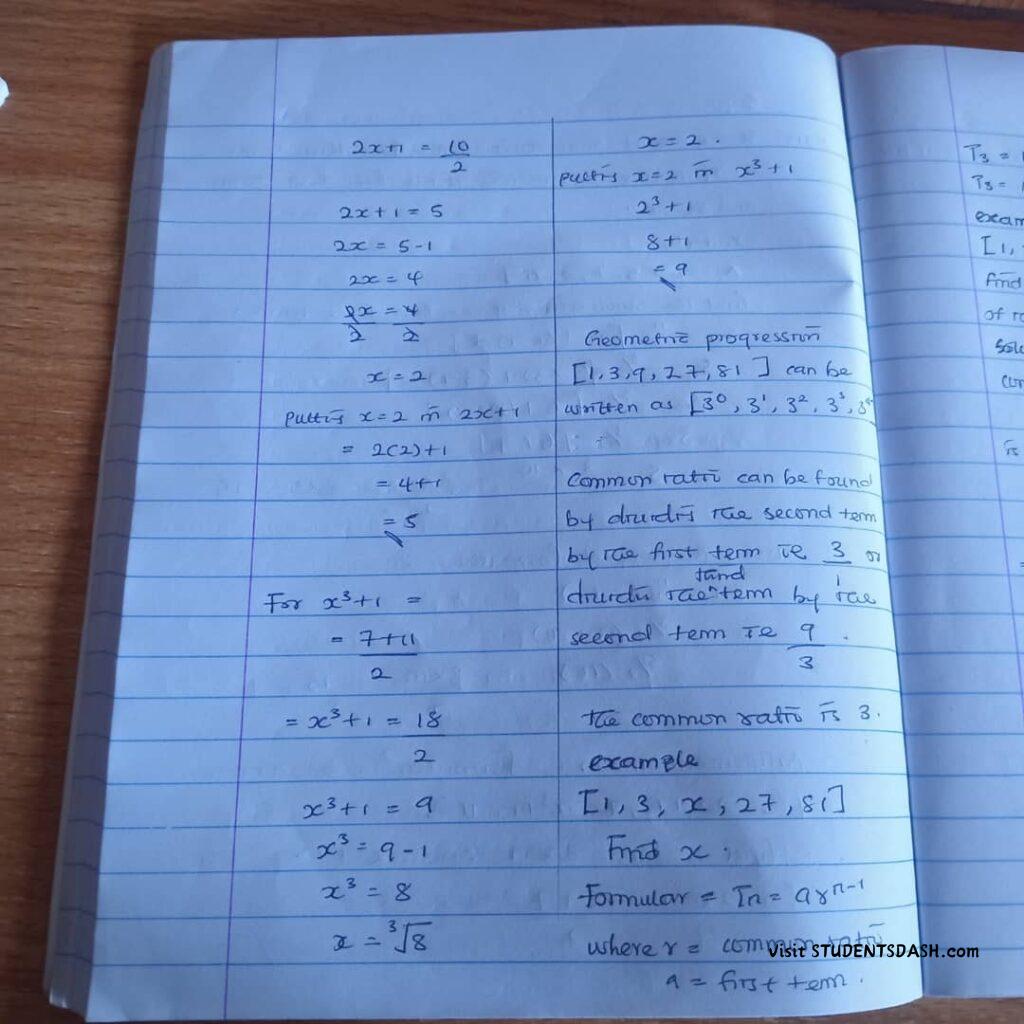 2x+1 = 10/2
2x+1 = 5
2x = 5-1
2x = 4
2x/2 = 4/2
x = 2
x=2 in 2x+1
= 2(2)+1
= 4+1
= 5
For x³+1 =
= 7+11/2
= x³+1 = 18/2
x³+1 = 9
x³ = 9-1
x³ = 8
x = ³√8
x = 2.
x=2 in x³+1
2³+1
8+1
= 9
Geometric progression
[1,3,9,27,81] can be
written as [3⁰, 3¹, 3², 3³, 3⁴
Common ratio can be found
by the second term
by the first term ie 3/1 or
the third term by the
second term ie 9/3.
the common ratio is 3.
example
[1, 3, x, 27, 81]
Find x.
Formular = Tn = arⁿ⁻¹
where r = common ratio
a = first term.
T3 =
exam
[1,
find
of
Visit STUDENTSDASH.com